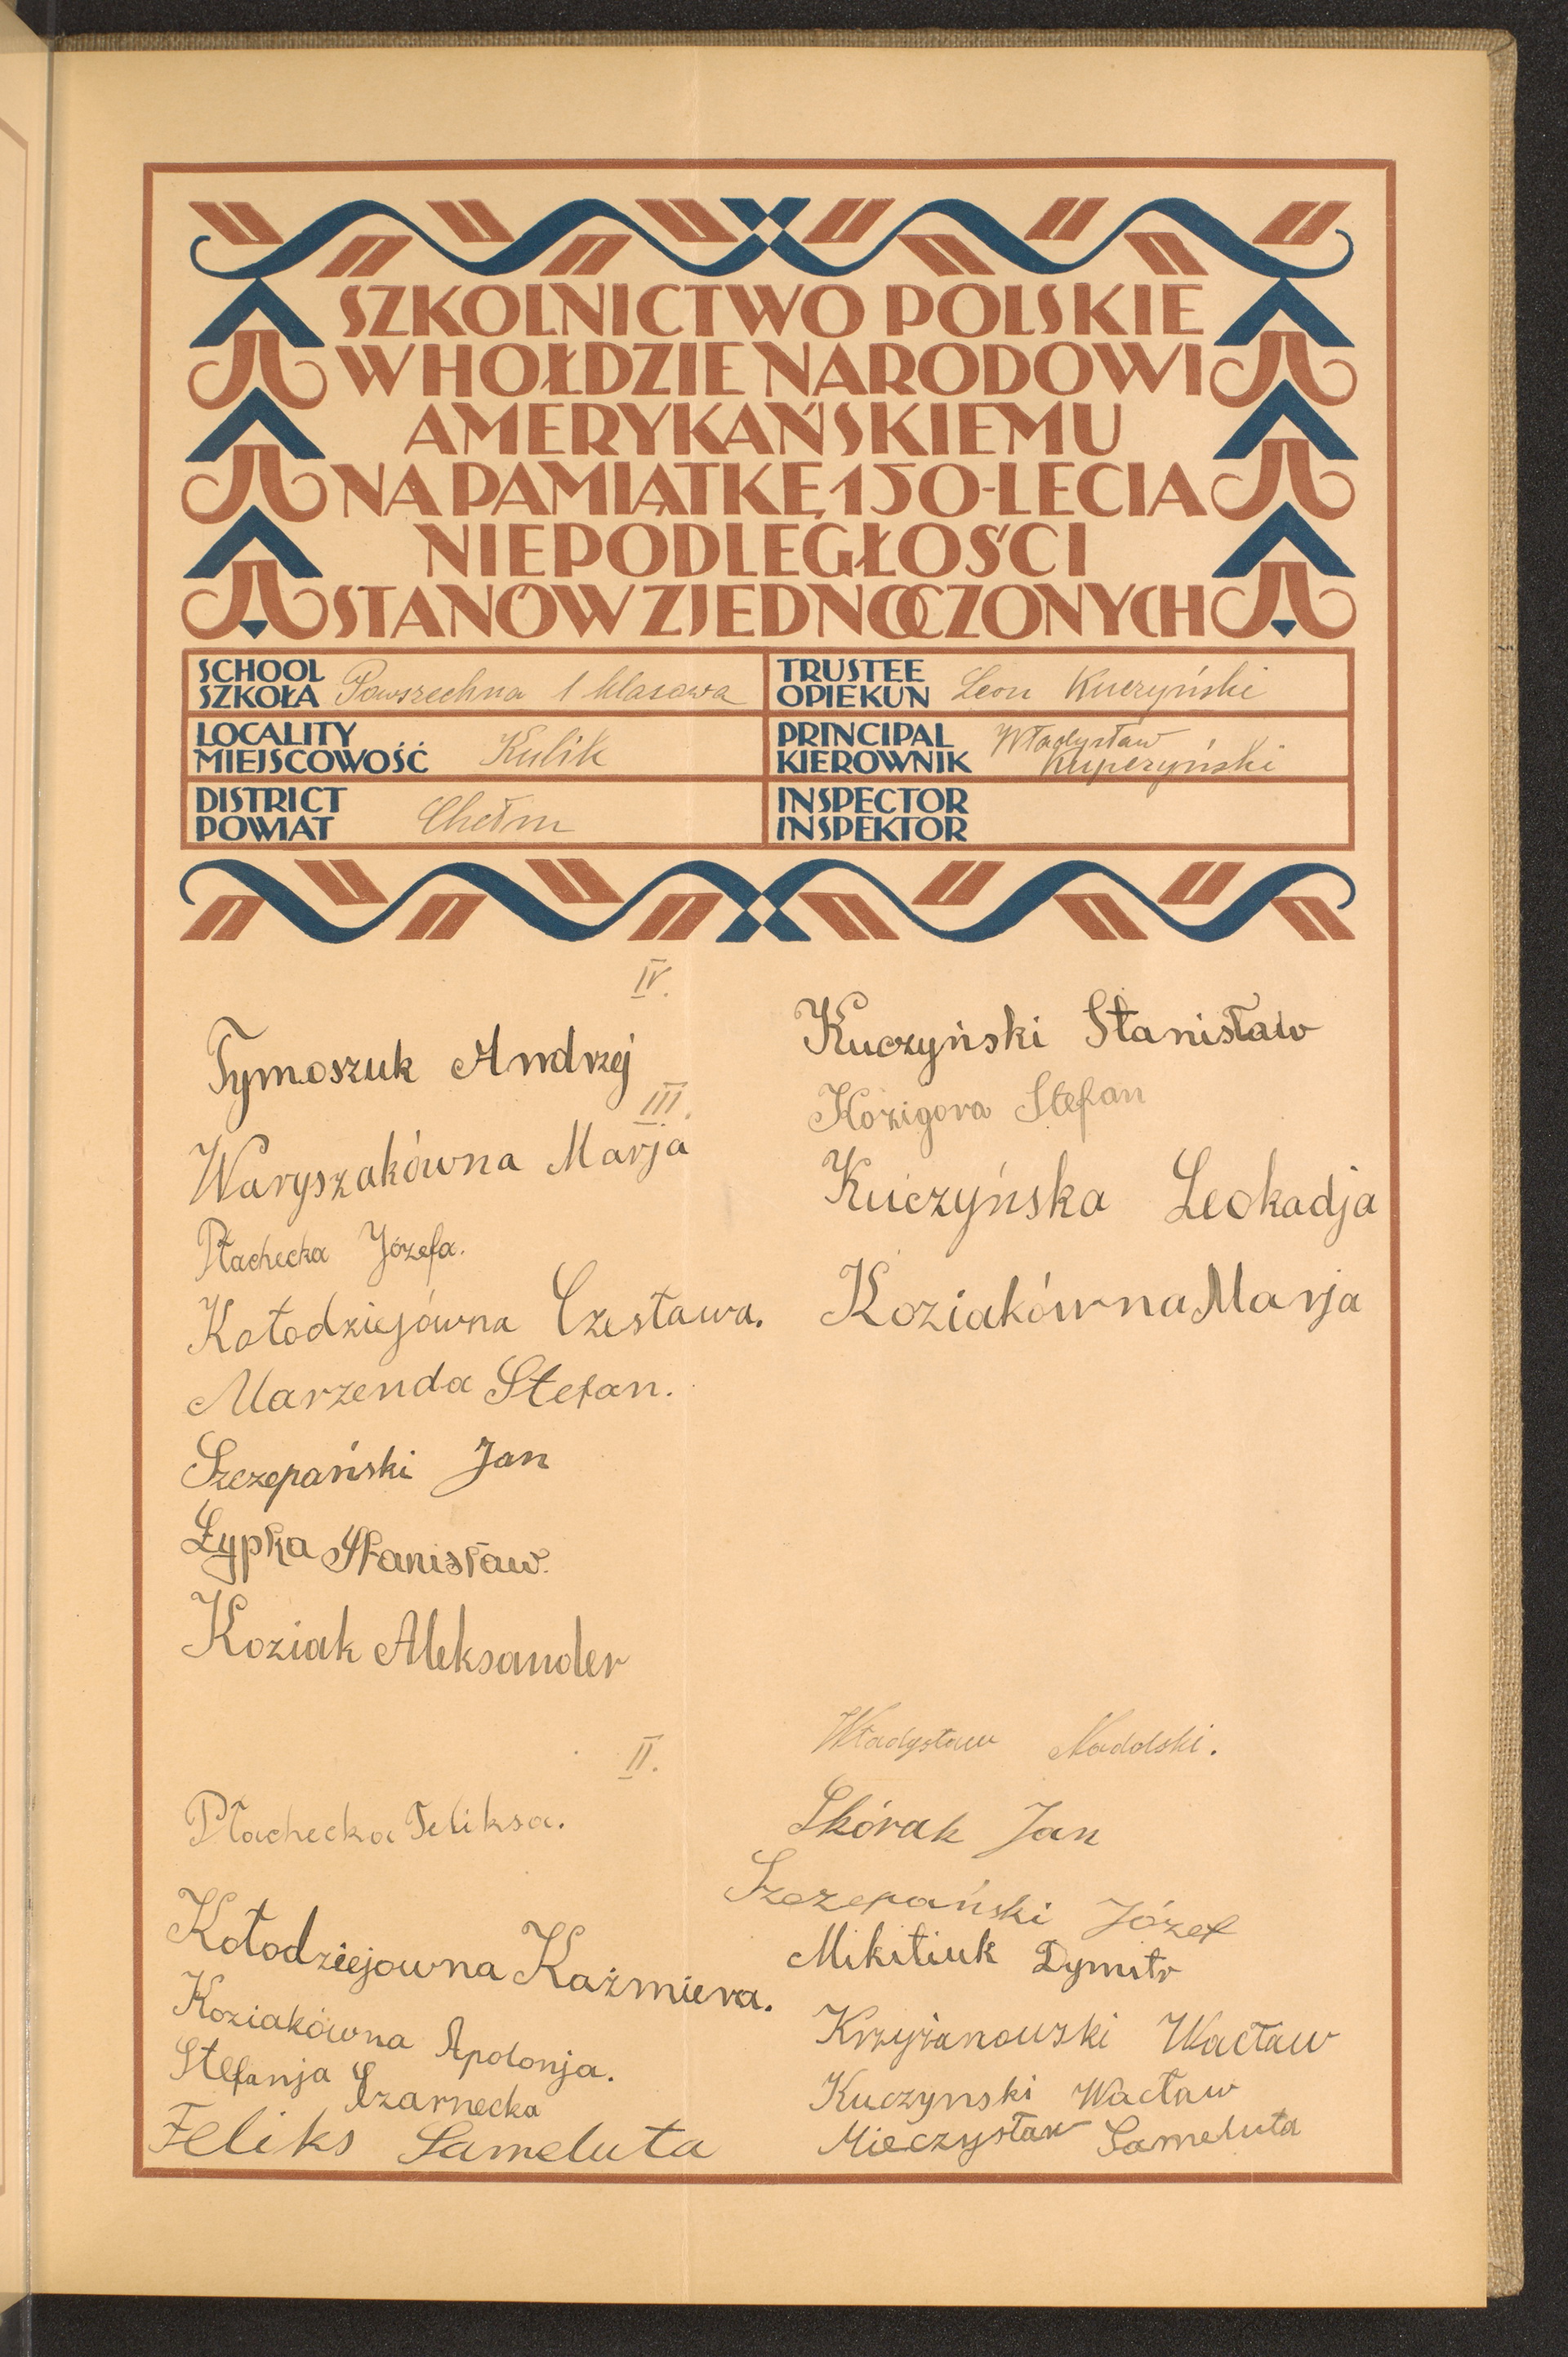 SZKOLNICTWO POLSKIE
W HOŁDZIE NARODOWI
AMERYKAŃSKIEMU
NA PAMIĄTKĘ 150-LECIA
NIEPODLEGŁOŚCI
STANÓW ZJEDNOCZONYCH
SCHOOL
SZKOŁA Powszechna 1 klasowa
TRUSTEE
OPIEKUN Leon Kuczyński
LOCALITY
MIEJSCOWOŚĆ Kulik
PRINCIPAL Władysław
KIEROWNIK Kupczyński
DISTRICT
POWIAT Chełm
INSPECTOR
INSPEKTOR
IV.
Tymoszuk Andrzej
III.
Waryszakówna Marja
Płachecka Józefa.
Kołodziejówna Czesława.
Marzenda Stefan.
Szczepański Jan
Łypka Stanisław.
Koziak Aleksander
Kuczyński Stanisław
Kozigora Stefan
Kuczyńska Leokadja
Koziakówna Marja
II.
Płachecka Feliksa.
Kołodziejowna Kaźmiera.
Koziakówna Apolonja.
Stefanja Czarnecka
Feliks Sameluta
Władysław Nadolski.
Skórak Jan
Szczepański Józef
Mikitiuk Dymitr
Krzyżanowski Wacław
Kuczynski Wacław
Mieczysław Sameluta